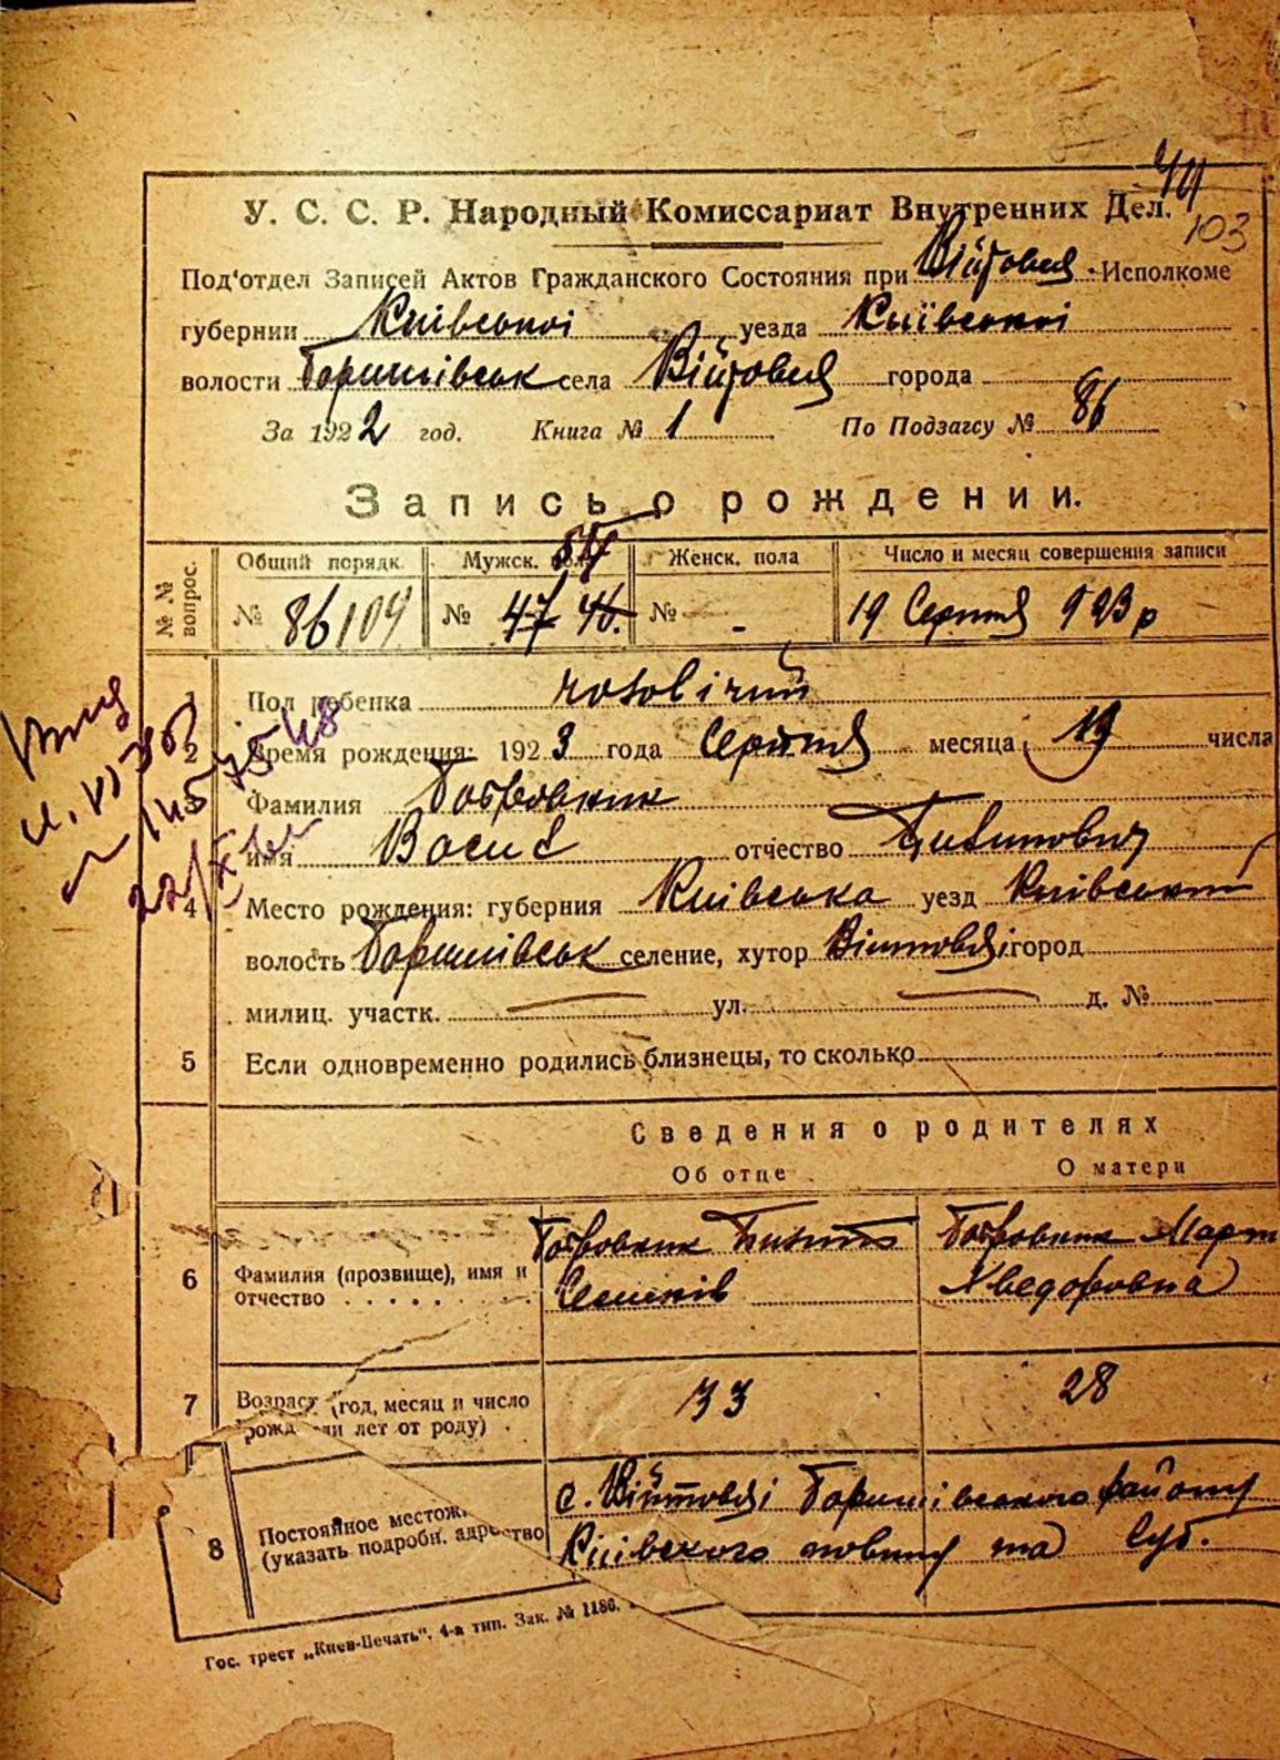 У. С. С. Р. Народный Комиссариат Внутренних Дел.
103
Под'отдел Записей Актов Гражданского Состояния при Війтовця Исполкоме
губернии Київської уезда Київської
волости Баришівськ села Війтовця города
За 1922 год. Книга № 1 По Подзагсу № 86
Запись о рождении.
№ № вопрос. Общий порядк. Мужск. пола Женск. пола Число и месяц совершения записи
№ 86 104 № 47 46. № - 19 Серпня 923 р
1 Пол ребенка чоловічий
2 Время рождения: 1923 года Серпня месяца 19 числа
3 Фамилия Бобровник
имя Василь отчество Пилипович
4 Место рождения: губерния Київська уезд Київський
волость Баришівськ селение, хутор Війтовці город
милиц. участк. ул. д. №
5 Если одновременно родились близнецы, то сколько
Сведения о родителях
Об отце О матери
Бобровник Пилип Бобровник Март
6 Фамилия (прозвище), имя и отчество Семенів Хведоровна
7 Возраст (год, месяц и число рожд ли лет от роду) 33 28
с. Війтовці Баришівського району
8 Постоянное местож ство (указать подробн. адре Київского повиту та Губ.
Гос. трест „Киев-Печать". 4-я тип. Зак. № 1186.